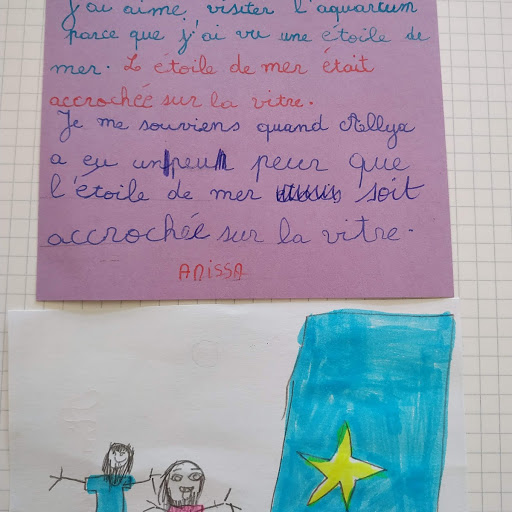 J'ai aimé visiter l'aquarium
parce que j'ai vu une étoile de
mer. L étoile de mer était
accrochée sur la vitre.
Je me souviens quand Allya
a eu un peu peur que
l'étoile de mer soit
accrochée sur la vitre.
ANissA